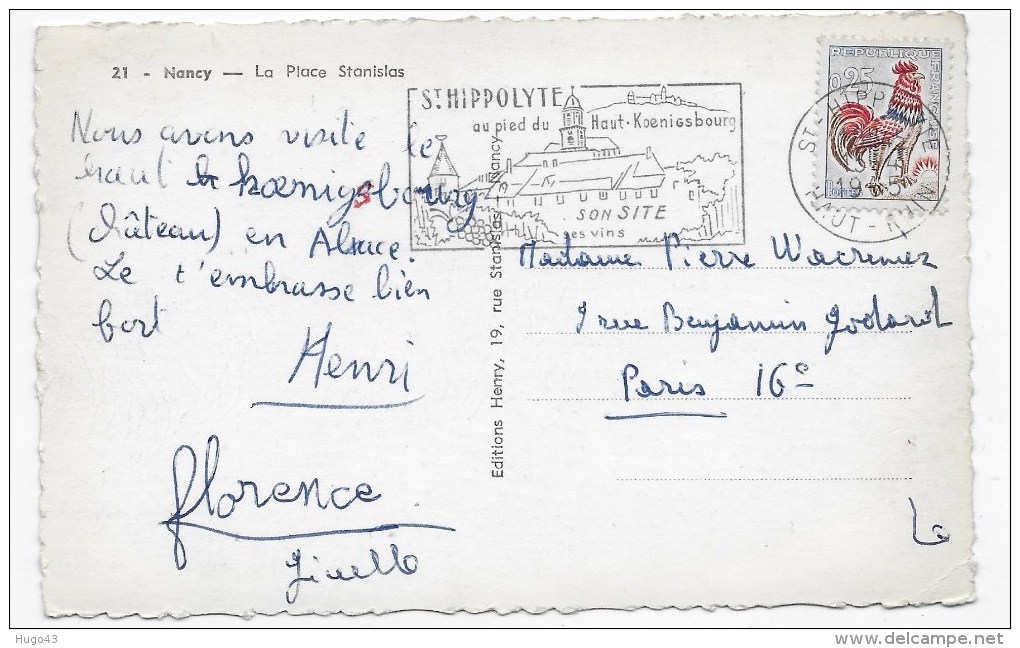 21 - Nancy — La Place Stanislas
Nous avons visité le
haut koenigsbourg
(château) en Alsace.
Je t'embrasse bien
fort
Henri
florence
Editions Henry, 19, rue Stanislas - Nancy
ST HIPPOLYTE
au pied du Haut-Kœnigsbourg
SON SITE
ses vins
REPUBLIQUE FRANÇAISE
0,25
ST-HIPP
HAUT-RHIN
Madame Pierre Wacrenez
rue Benjamin Godard
Paris 16e
Hugo43
www.delcampe.net